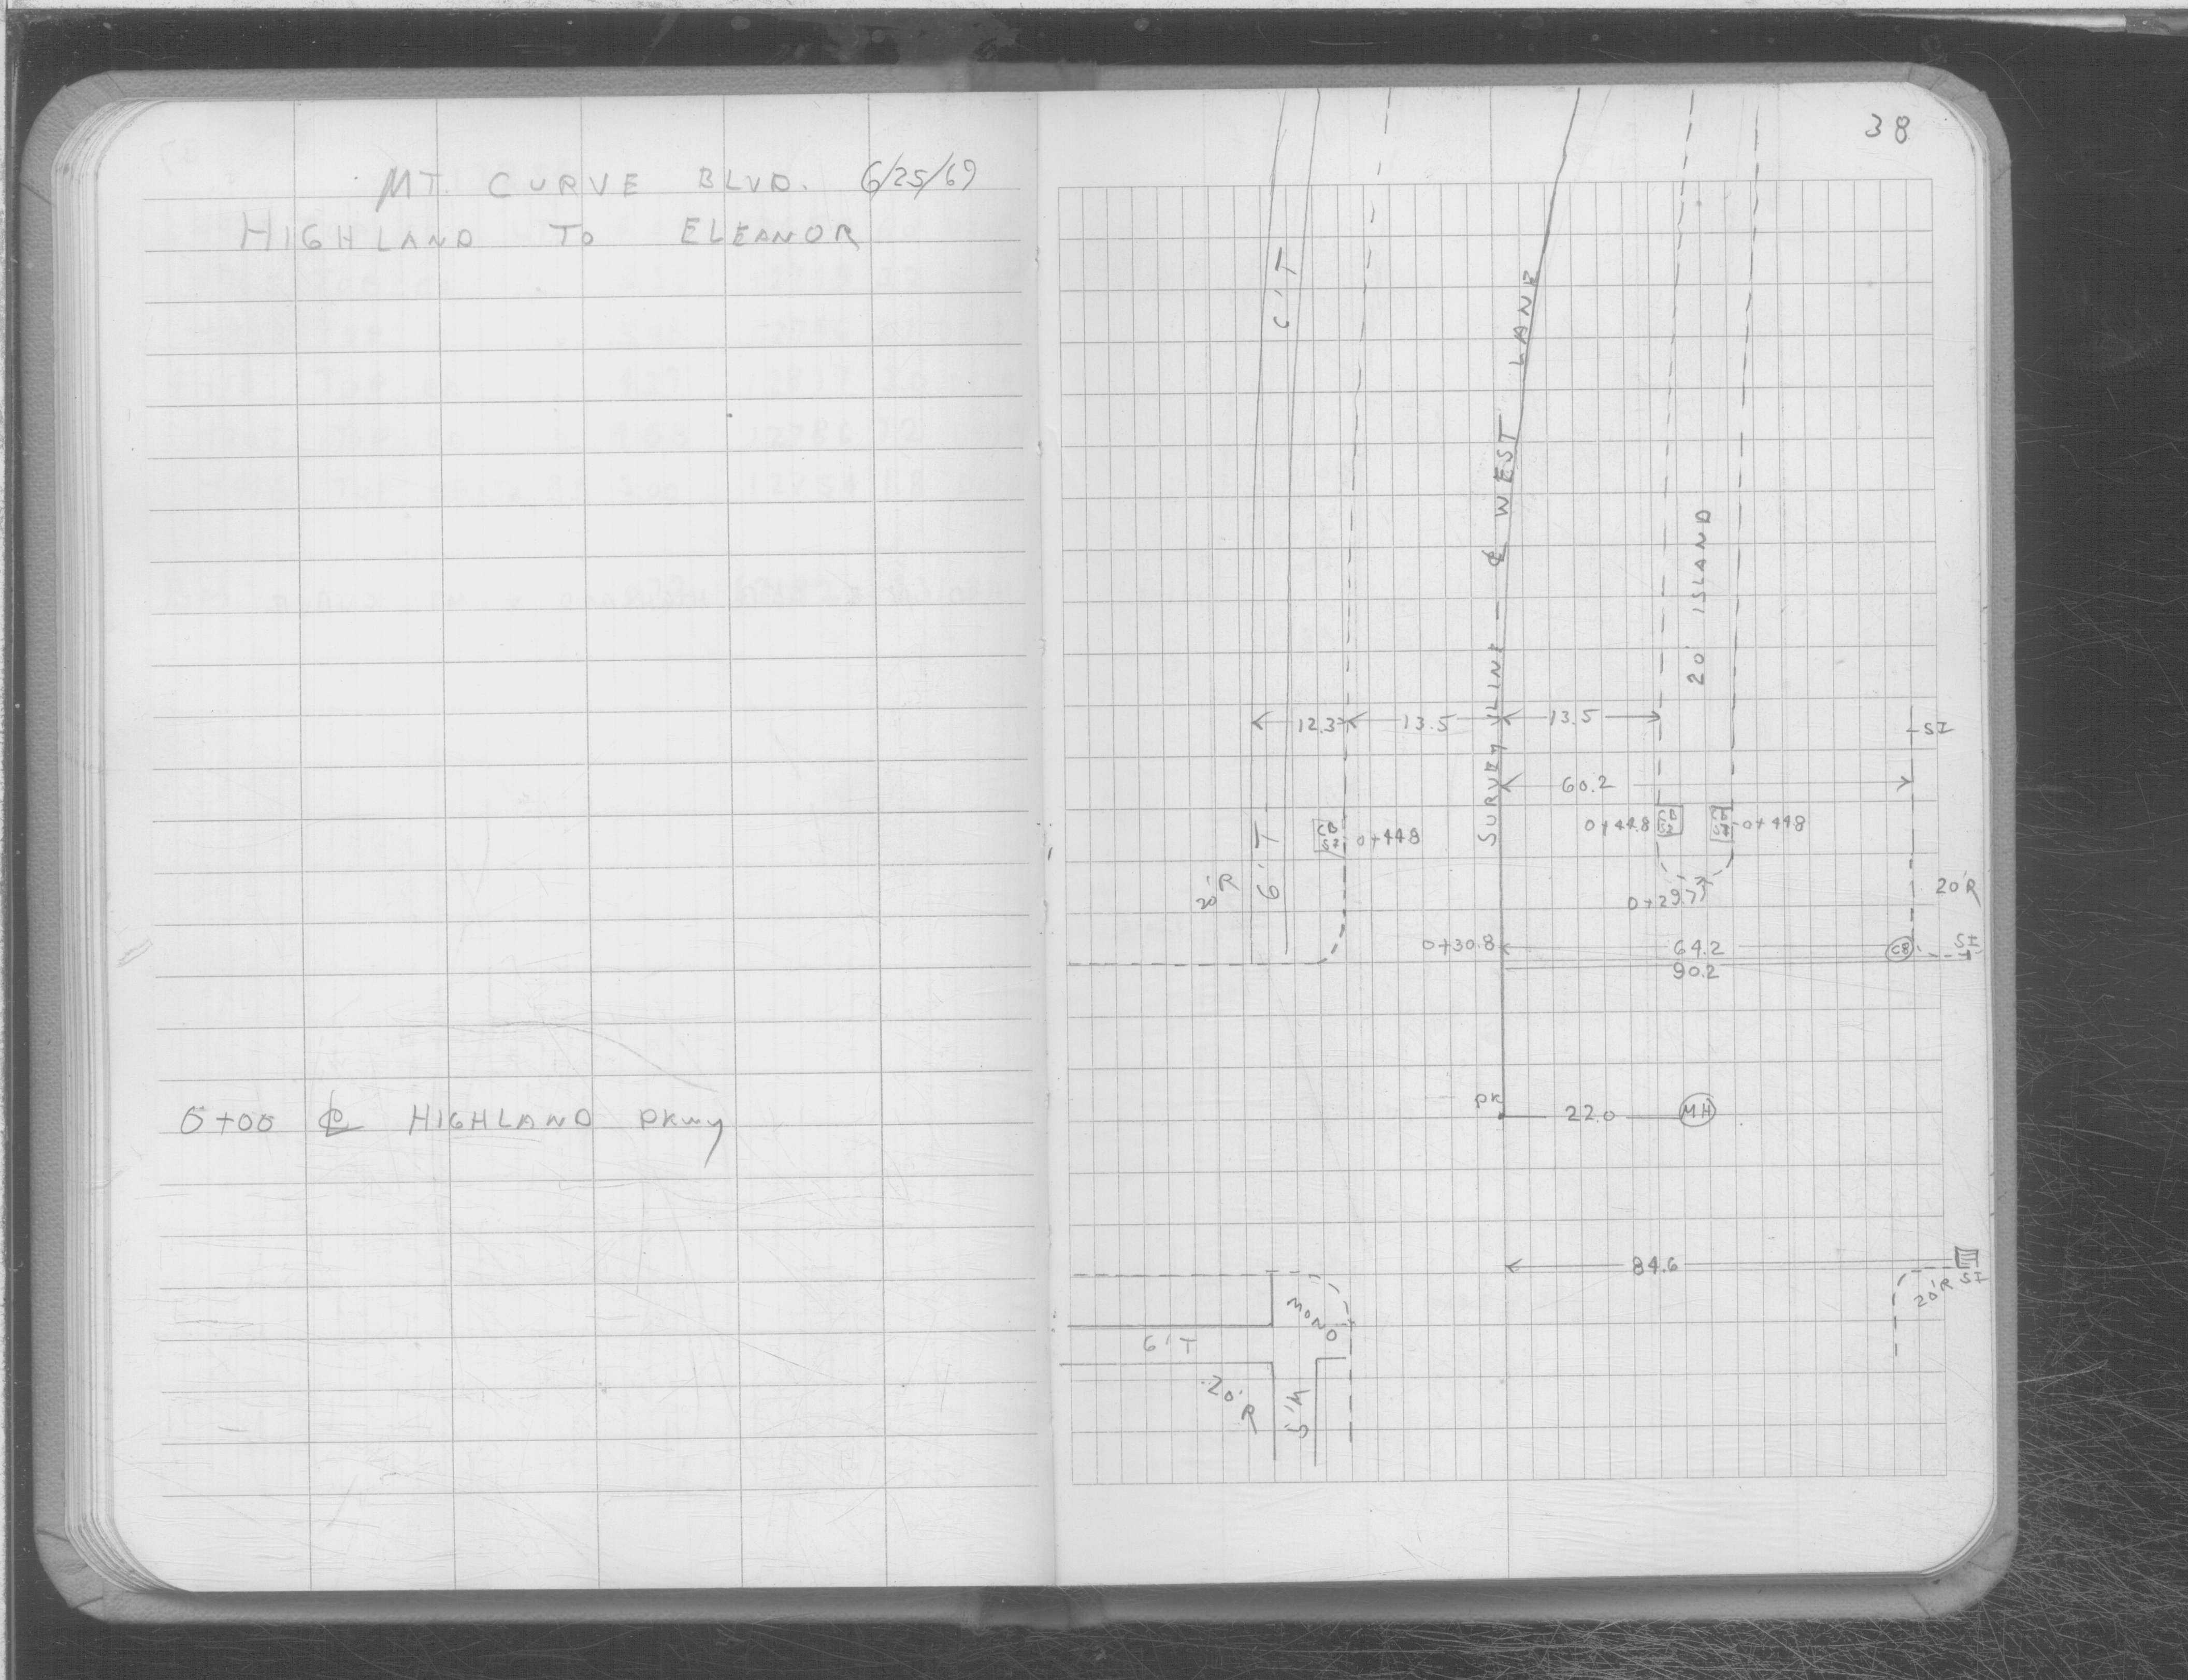 MT. CURVE BLVD. 6/25/69
HIGHLAND TO ELEANOR
0+00 ℄ HIGHLAND PKWY
38
6'T
SURVEY LINE - ℄ WEST LANE
20' ISLAND
12.3 13.5 13.5
SI
60.2
CB SI 0+44.8
0+44.8 CB SI
CB SI 0+44.8
20'R
6'T
0+29.7
20'R
0+30.8 64.2 CB SI
90.2
PK 22.0 MH
84.6
SI
20'R
MONO
6'T
20'R
5'M